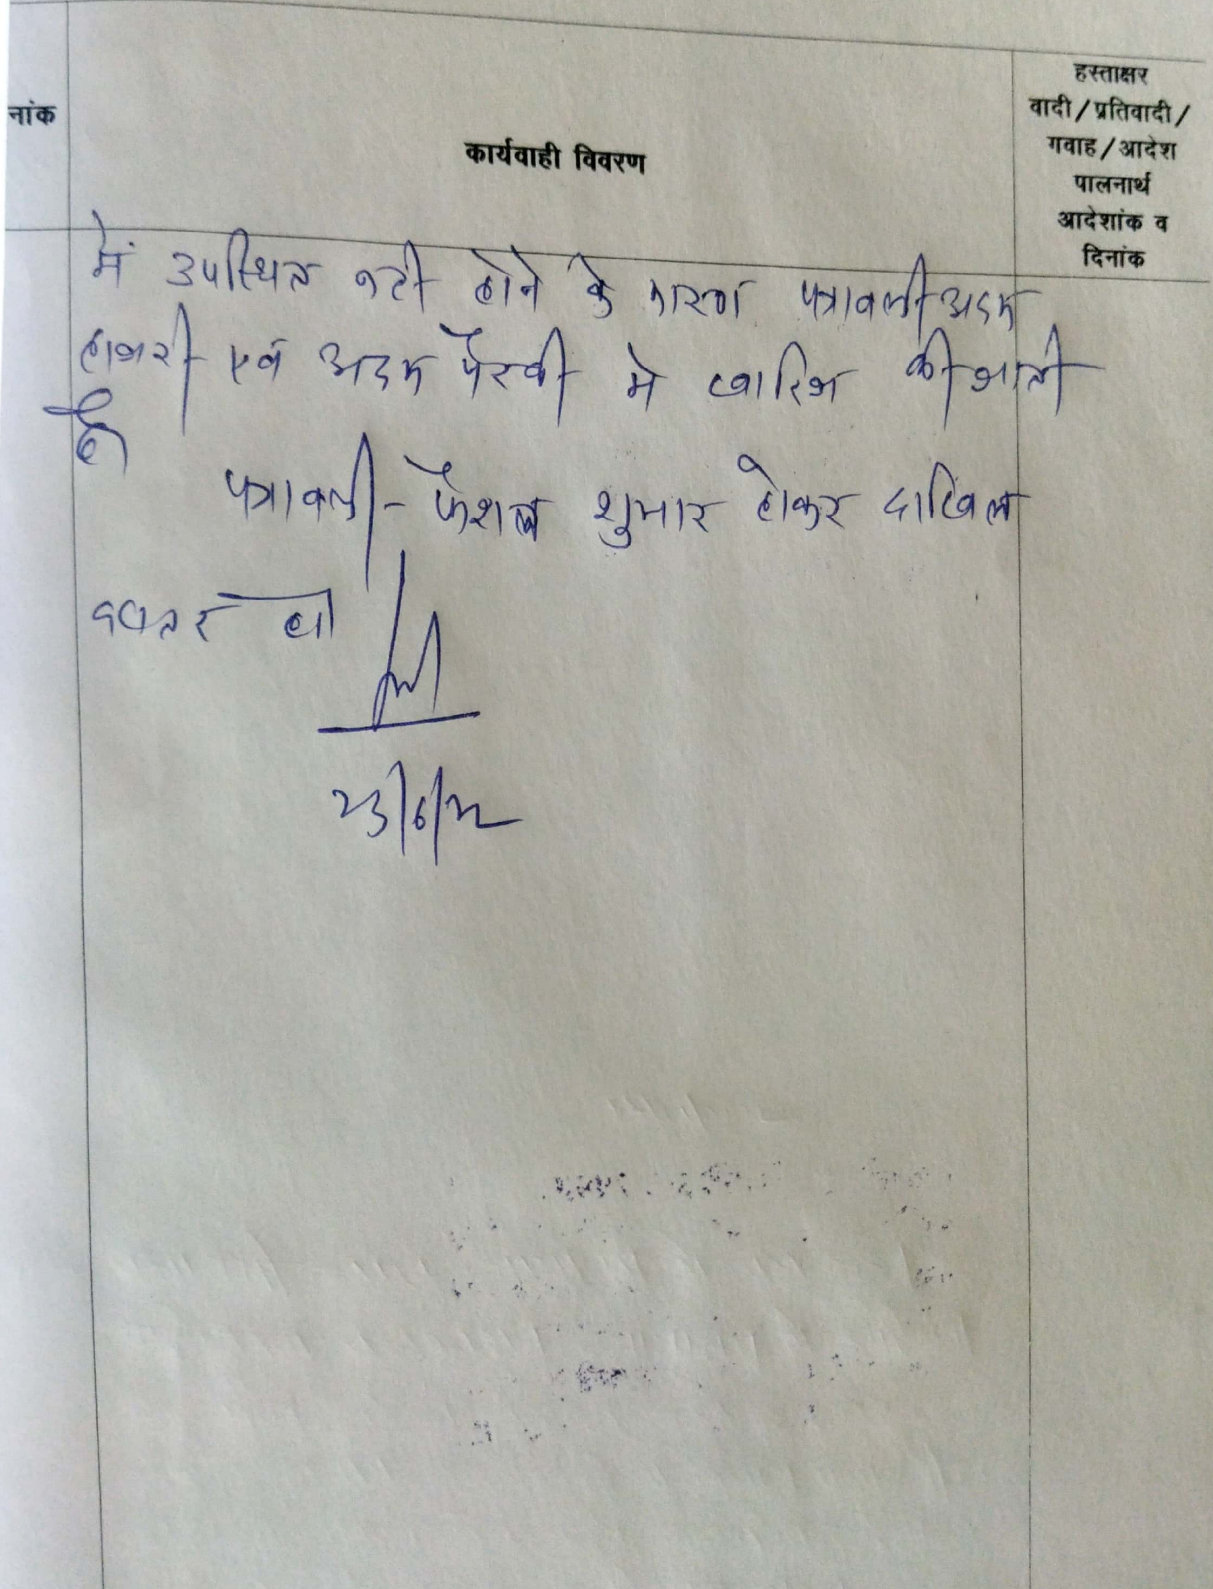 हस्ताक्षर
वादी/प्रतिवादी/
गवाह/आदेश
पालनार्थ
आदेशांक व
दिनांक
नांक
कार्यवाही विवरण
में उपस्थित नही होने के कारण पत्रावली अदम
हाजरी एवं अदम पैरवी मे खारिज की जाती
है
पत्रावली - फैशल शुमार होकर दाखिल
दफ्तर हो
23/6/22